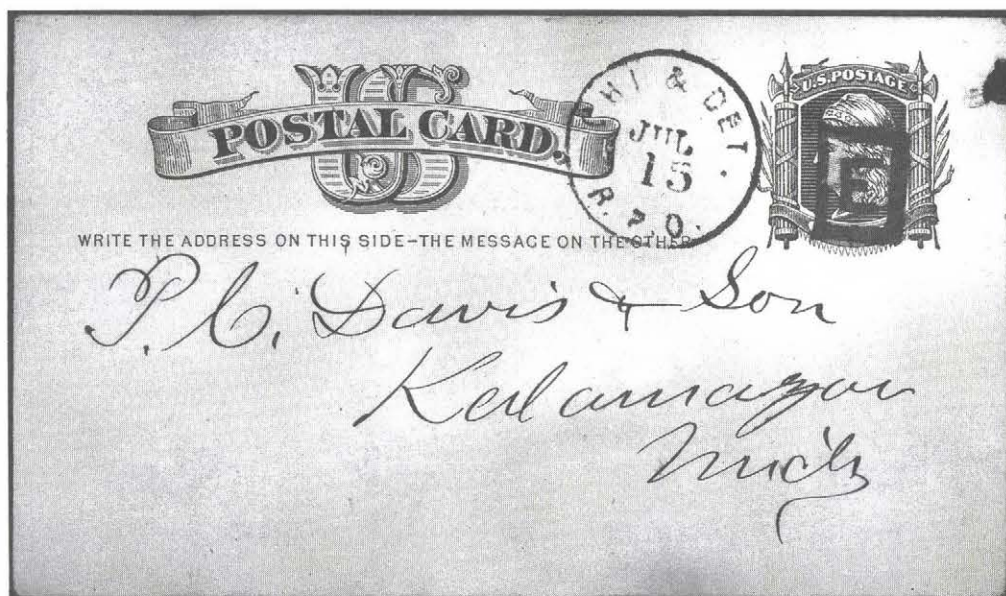 U.S. POSTAGE
US
POSTAL CARD.
CHI & DET.
JUL
15
R.P.O.
E
WRITE THE ADDRESS ON THIS SIDE–THE MESSAGE ON THE OTHER
P. C. Davis & Son
Kalamazoo
Mich